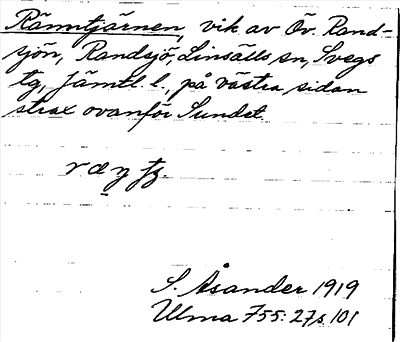 Rämntjärnen, vik av Öv. Rand-
sjön, Randsjö, Linsälls sn, Svegs
tg, Jämtl. l., på västra sidan
strax ovanför Sundet.
S. Åsander 1919
Ulma 755:27 s. 101